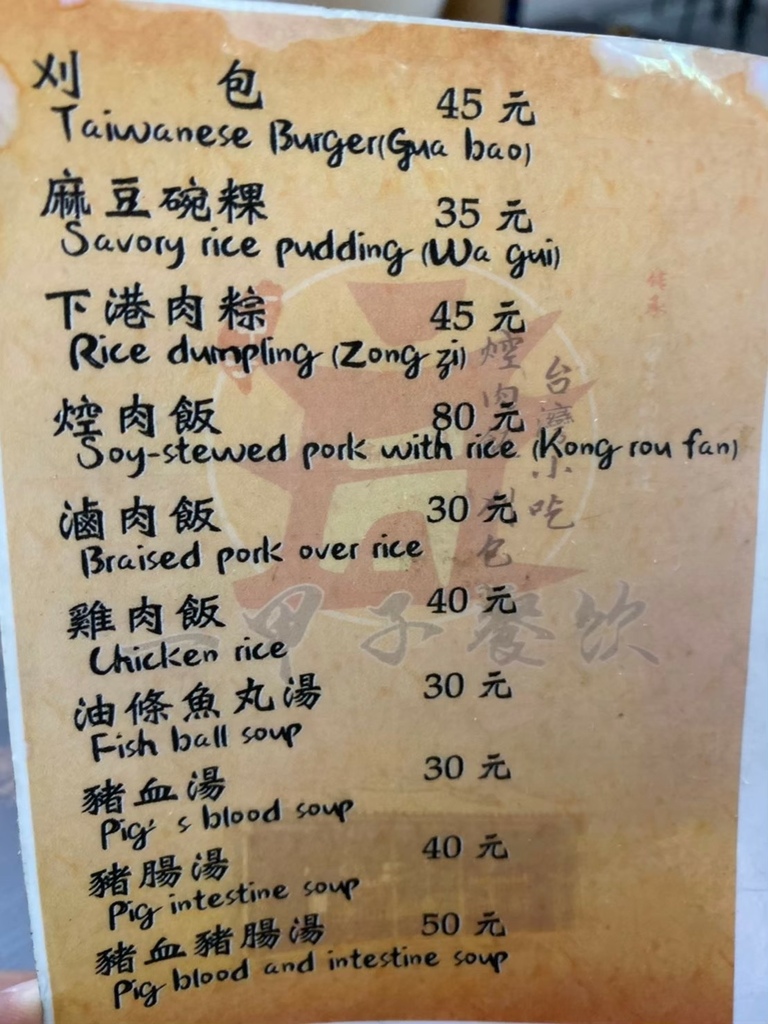 刈包 45 元
Taiwanese Burger(Gua bao)
麻豆碗粿 35 元
Savory rice pudding (Wa gui)
下港肉粽 45 元
Rice dumpling (Zong zi)
焢肉飯 80 元
Soy-stewed pork with rice (Kong rou fan)
滷肉飯 30 元
Braised pork over rice
雞肉飯 40 元
Chicken rice
油條魚丸湯 30 元
Fish ball soup
豬血湯 30 元
Pig's blood soup
豬腸湯 40 元
Pig intestine soup
豬血豬腸湯 50 元
Pig blood and intestine soup
台灣小吃
焢肉飯刈包
一甲子餐饮